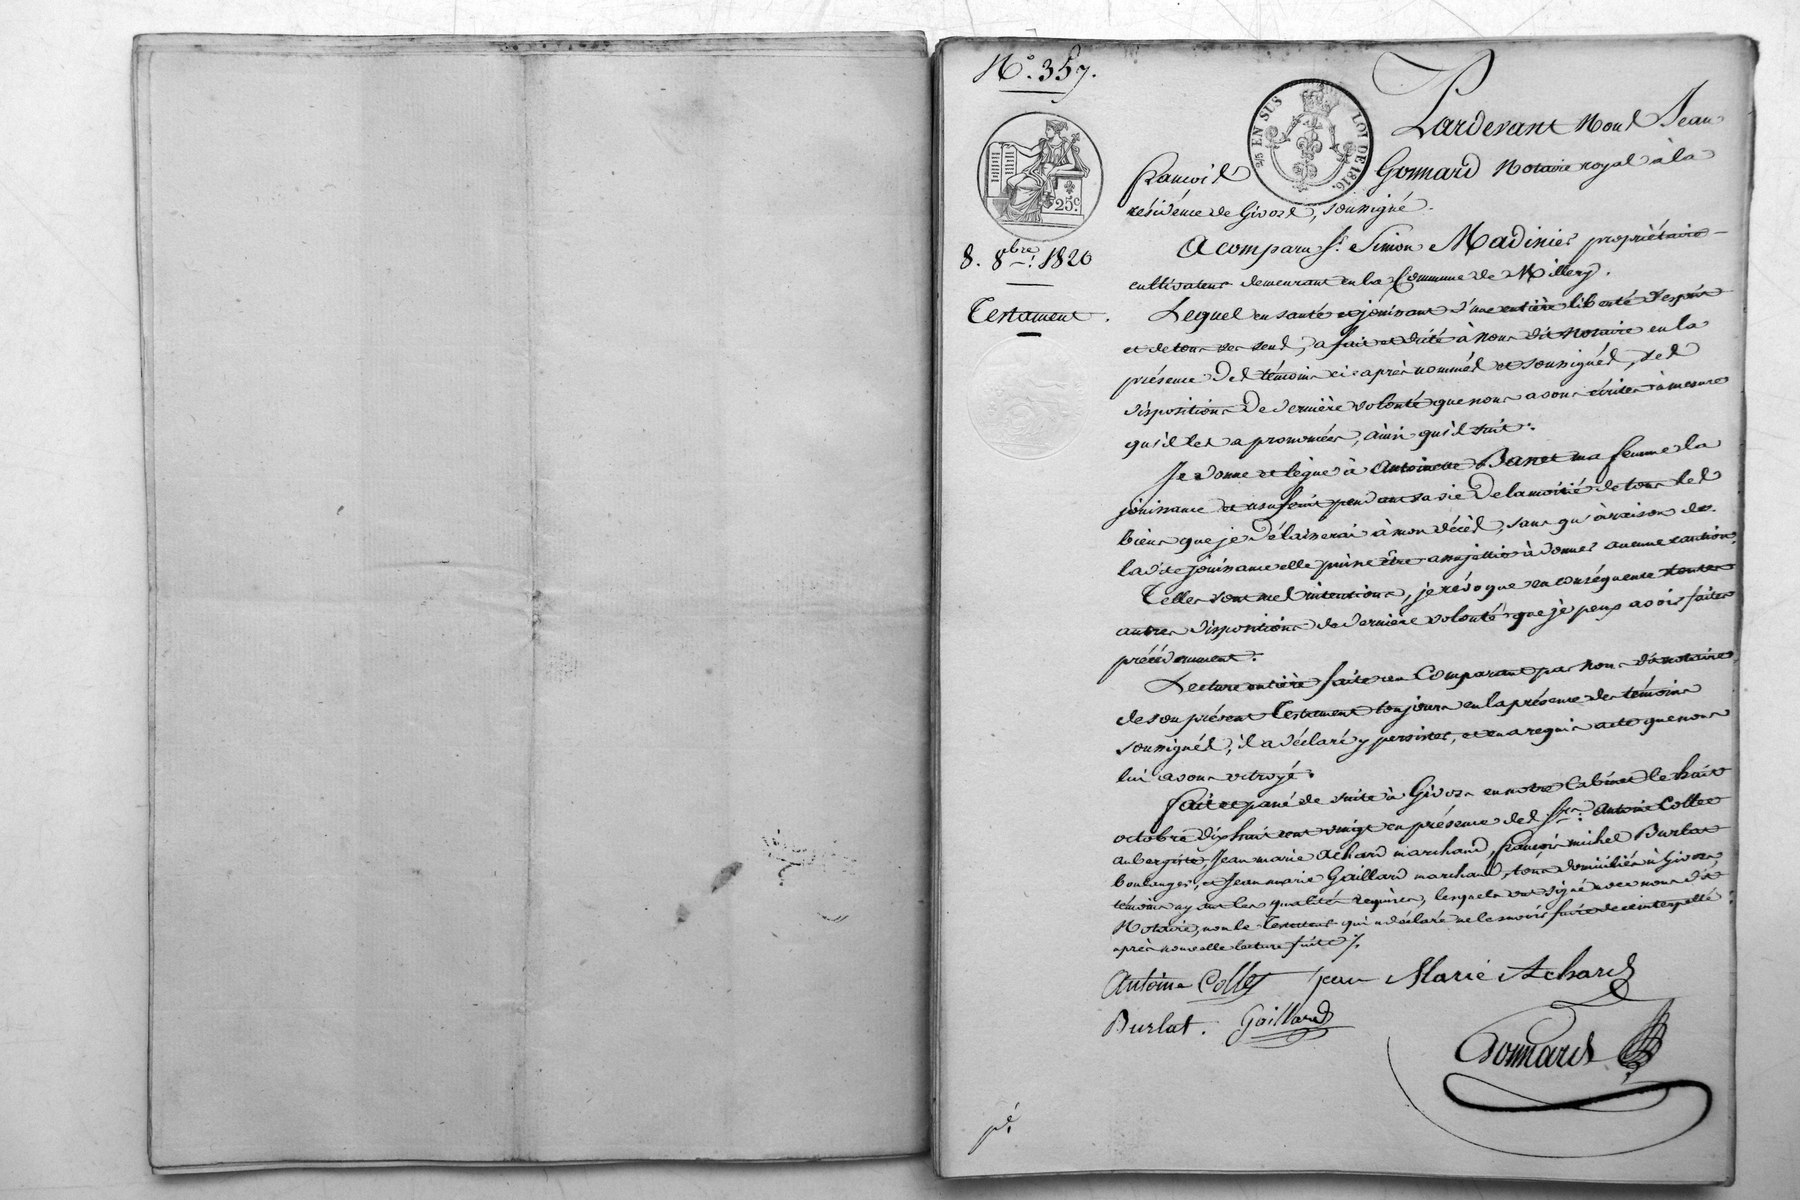 N°. 357.
25 EN SUS
LOI DE 1816.
25c
8. 8bre. 1820
Testament.
Pardevant Nous Jean
françois Gonnard Notaire royal à la
résidence de Givors, soussigné.
A comparu Sr. Simon Madinier propriétaire
cultivateur demeurant en la Commune de Millery.
Lequel en santé et jouissant d'une entière liberté d'esprit
et de tous ses sens, a fait et dicté à nous dit Notaire en la
présence des témoins ci-après nommés et soussignés, ses
dispositions de dernière volonté que nous avons écrites à mesure
qu'il les a prononcées, ainsi qu'il suit:
Je donne et lègue à Antoinette Banet ma femme la
jouissance et usufruit pendant sa vie de la moitié de tous les
biens que je délaisserai à mon décès, sans qu'à raison de
ladte jouissance elle puisse être assujettie à donner aucune caution.
Telles sont mes intentions, je révoque en conséquence toutes
autres dispositions de dernière volonté que je peux avoir faites
précédemment.
Lecture entière faite au Comparant par nous dit notaire
de son présent Testament toujours en la présence des témoins
soussignés, il a déclaré y persister, et en a requis acte que nous
lui avons octroyé.
fait et passé de suite à Givors en notre Cabinet le huit
octobre dix huit cent vingt en présence des Srs. Antoine Collet
aubergiste, Jean marie Achard marchand, françois michel Burlat
boulanger, et Jean marie Gaillard marchand, tous domiciliés à Givors,
témoins ayant les qualités requises, lesquels ont signé avec nous dit
Notaire, non le Testateur qui a déclaré ne le savoir faire de ce interpellé
après nouvelle lecture faite ./.
Antoine Collet jean Marie Achard
Burlat. Gaillard
Gonnard
pé.